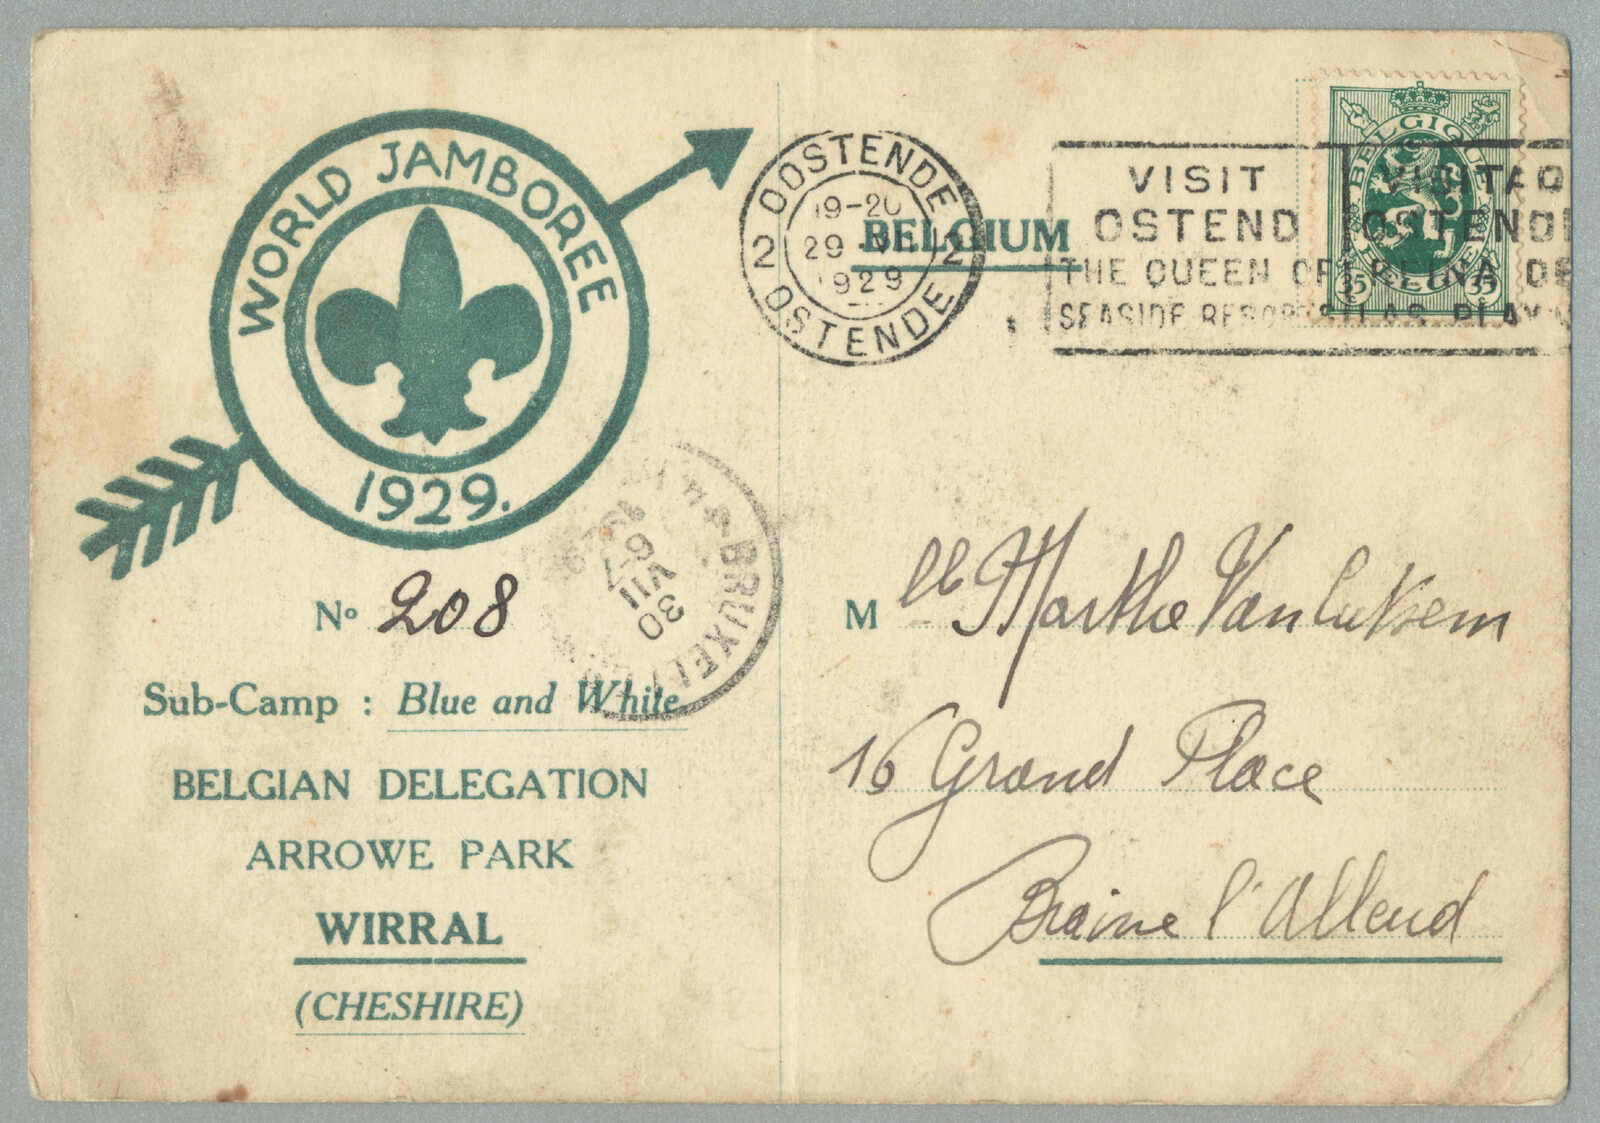 WORLD JAMBOREE
1929.
Nº 208
Sub-Camp : Blue and White
BELGIAN DELEGATION
ARROWE PARK
WIRRAL
(CHESHIRE)
OOSTENDE
2 2
19-20
29 VII
1929
OSTENDE
BELGIUM
VISIT
OSTEND
THE QUEEN OF
SEASIDE RESORTS
BELGIQUE
BELGIË
35 35
BRUXELLES
6-7
VII
30
M lle Marthe Van Cutsem
16 Grand Place
Braine l'Alleud